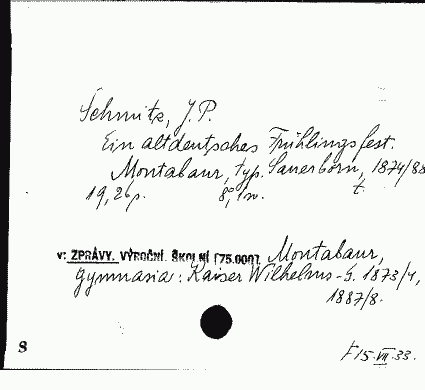 Schmitz, J.P.
Ein altdeutsches Frühlingsfest.
Montabaur, typ. Sauerborn, 1874/88
19, 26 p. 8°, 1 m. t.
v: ZPRÁVY. VÝROČNÍ. ŠKOLNÍ [75.000]. Montabaur,
gymnasia: Kaiser Wilhelms-G. 1873/4,
1887/8.
8
15.VII.33.